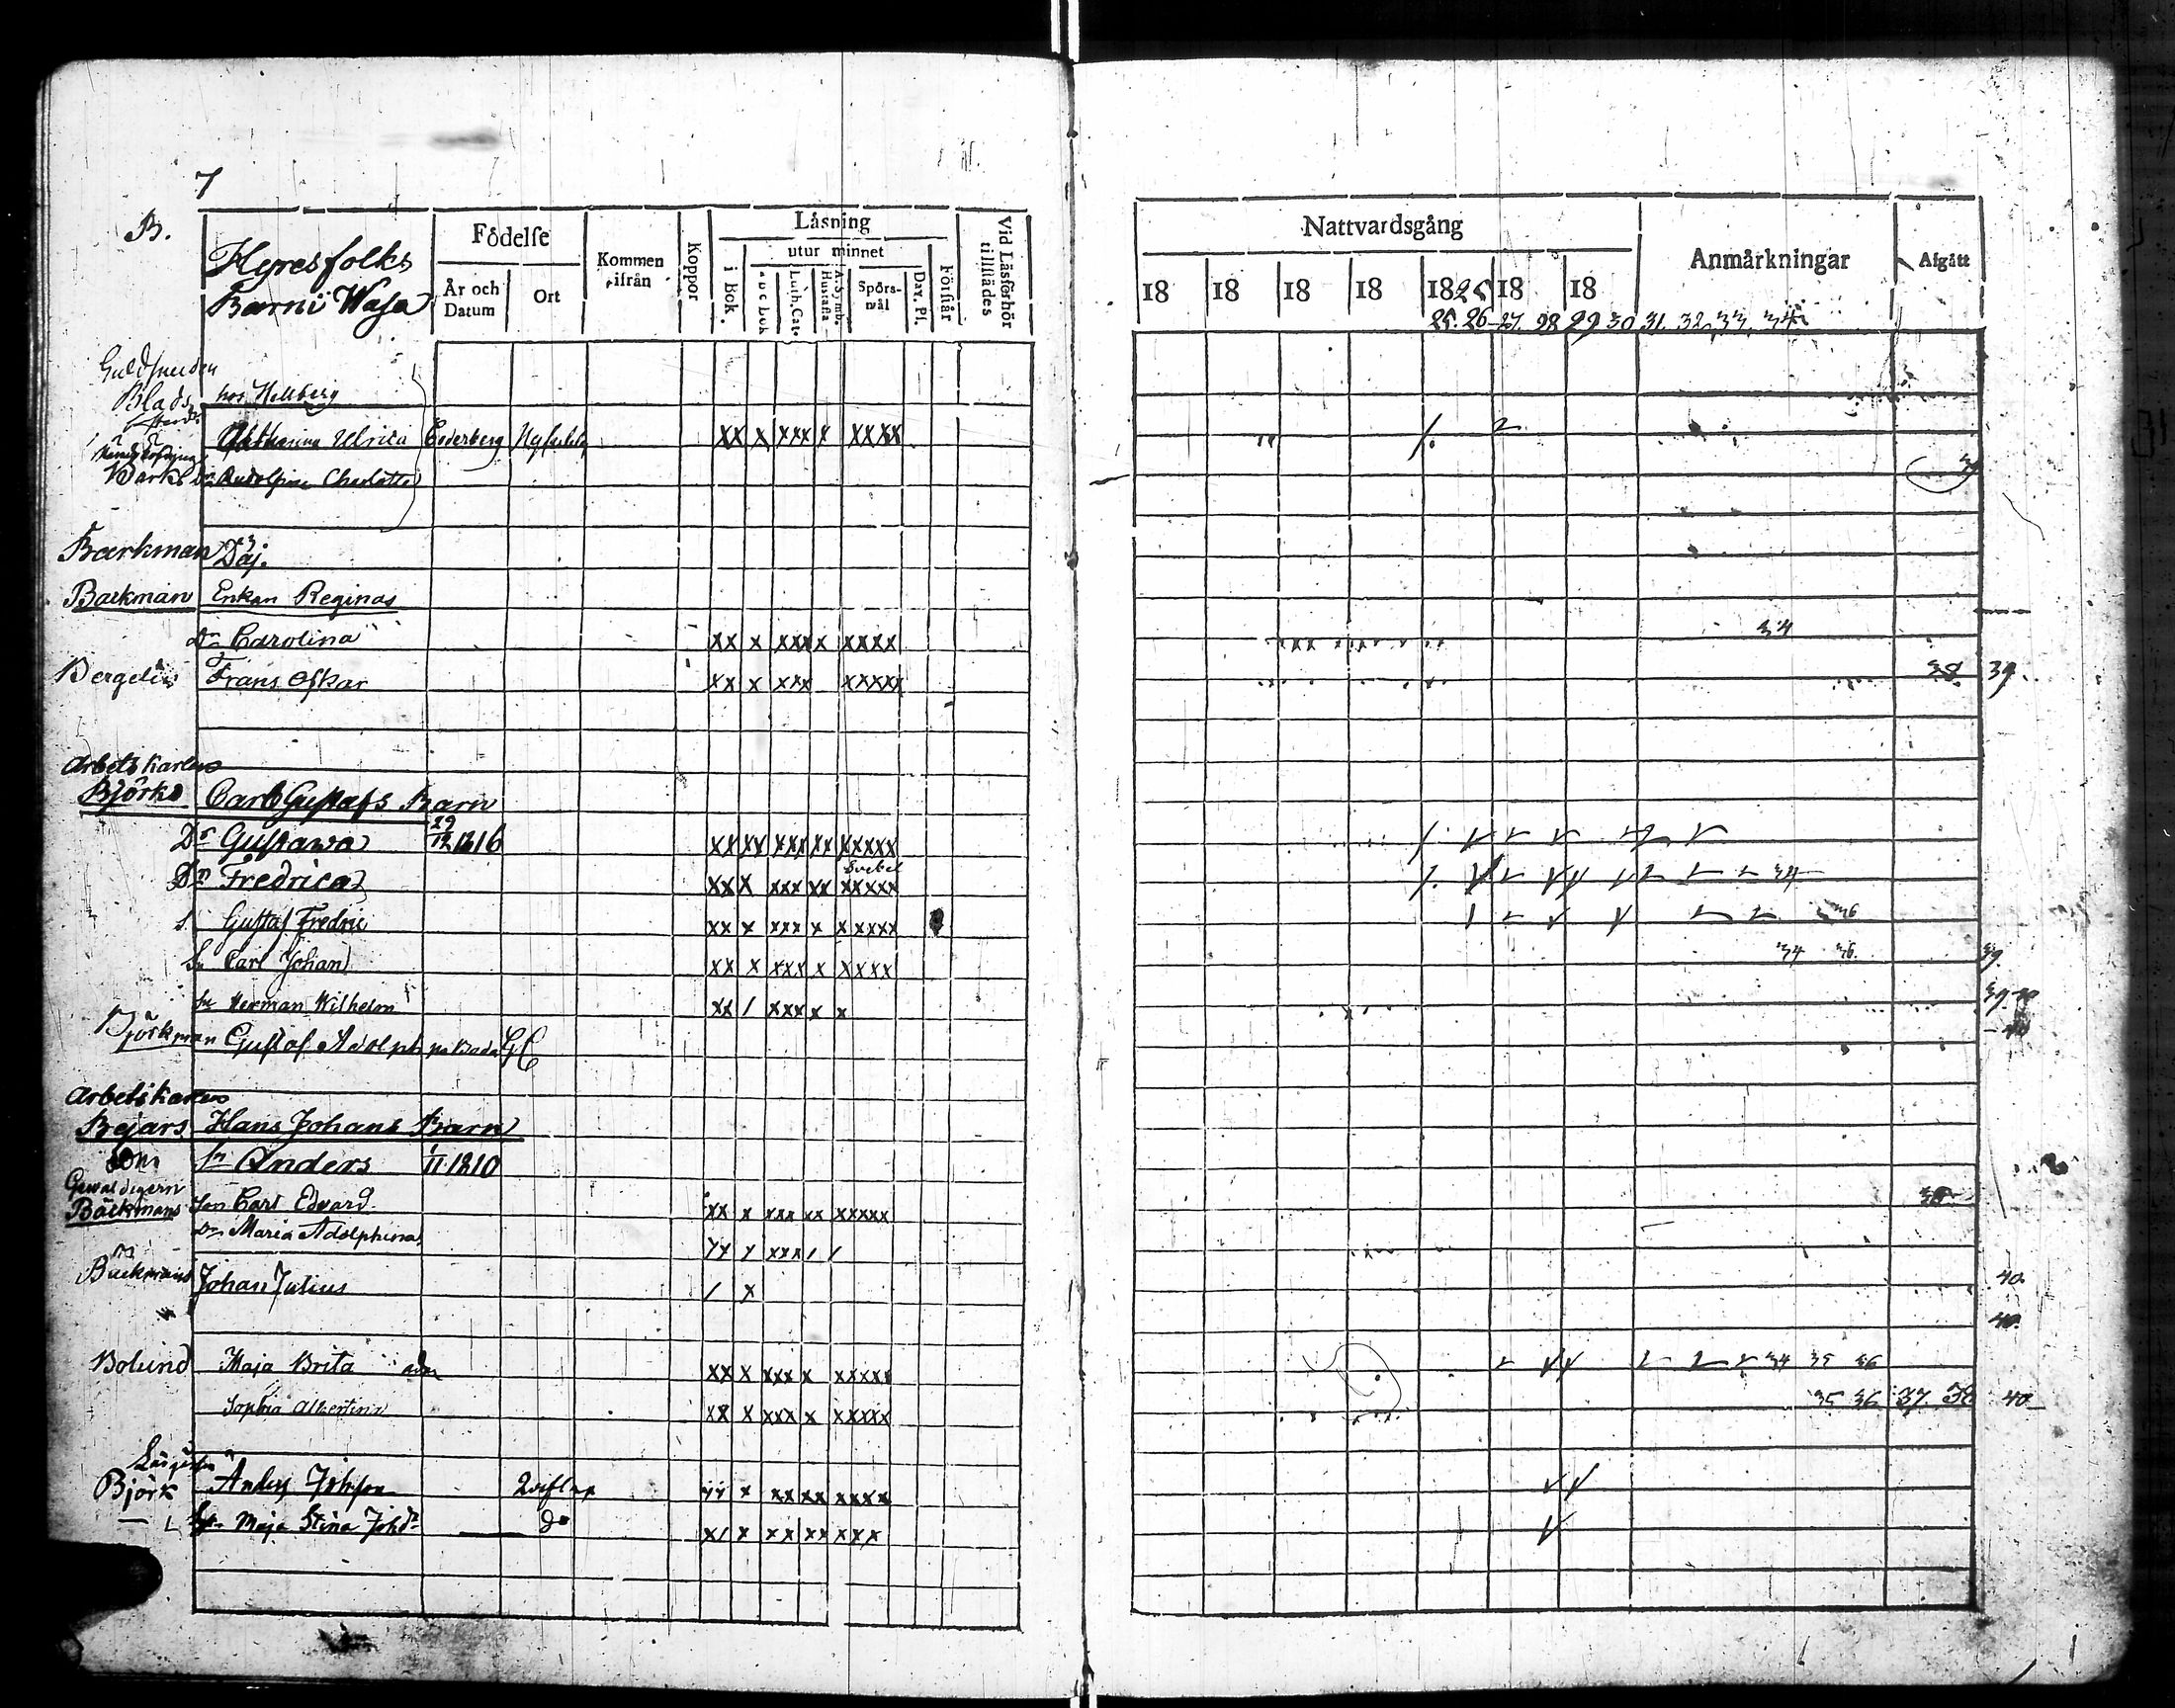 7
B.
Hyresfolks
Barn i Wasa
Födelse
År och Datum
Ort
Kommen ifrån
Koppor
Läsning
i Bok.
utur minnet
a b c bok
Luth. Cat.
A. Symb. Hustafla
Spörsmål
Dav. Ps.
Förstår
Vid Läsförhör tillstädes
Nattvardsgång
18 18 18 18 1825 18 18
25. 26 27. 28 29 30 31. 32 33. 34
Anmärkningar
Afgått
Guldsmeden
Blads hos Hellberg
Catharina Ulrica Cederberg
xx x xxx x xxxx
Rudolfina Charlotta
Barkman Daj.
Backman Enkan Reginas
Dr Carolina xx x xxxx x xxxx 34
Bergelin Frans Oskar xx x xxx xxxxx 38 39.
Arbetskarlens
Björks Carl Gustafs Barn
Dr Gustawa 29/12 1816 xx xx xxx xx xxxxx
Dr Fredrica xx x xxx xx xxxxx 34
s. Gustaf Fredric xx x xxx x xxxxx 36
Sn Carl Johan xx x xxx x xxxx 34 36. 39.
Sn Herman Wilhelm xx / xxx x x 39
Björkman Gustaf Adolph 40
Arbetskarlens
Bejars Hans Johans Barn
Sn Anders 1/11 1810
Gewaldigern
Bäckmans Son Carl Edvard xx x xxx xx xxxxx
Dr Maria Adolphina xx x xxx / /
Bäckmans Johan Julius / x 40.
40.
Bolund Maja Brita xx x xxx x xxxxx 34 35 36
Sophia Albertina xx x xxx x xxxxx 35 36 37. 38 40
Björk Anders Johnson x xx xx xxxx
Maja Stina Johdr do x/ x xx xx xxx